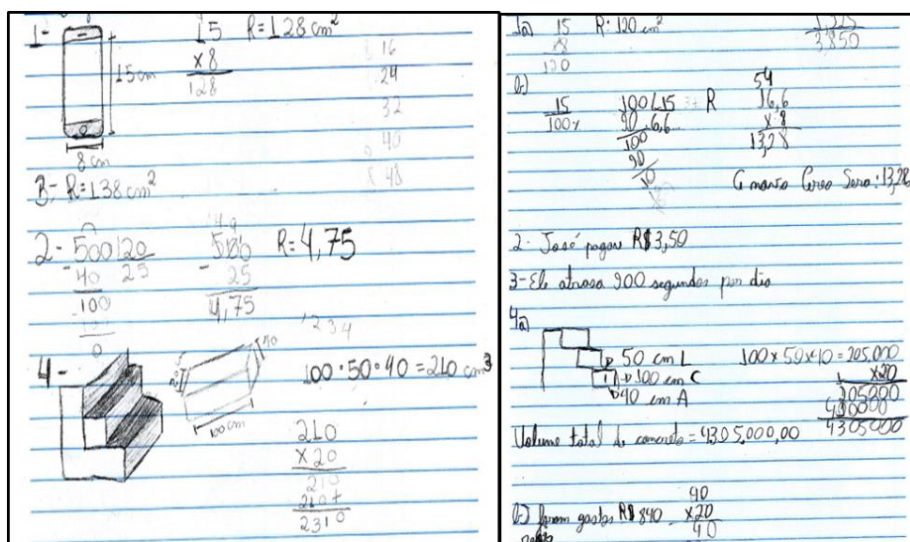 1-
15 R=128 cm²
x8
128
15 cm
8 cm
16
24
32
40
48
B- R=138 cm²
2- 500 20
40 25
100
0
500
25
4,75
R=4,75
1234
4-
100 cm
100·50·40 = 210 cm³
210
x20
210
210+
2310
1a) 15 R: 120 cm²
x8
120
3,850
b)
15
100%
100 15
90 6,6
100
90
10
R
54
16,6
x8
13,28
2- José pagou R$3,50
3- Ele atrasa 900 segundos por dia
4a)
50 cm L
100 cm C
40 cm A
100 x 50 x 40 = 205.000
x20
205000
4305000
Volume total de concreto = 4305,000,00
b) foram gastos R$ 840
40
x20
40